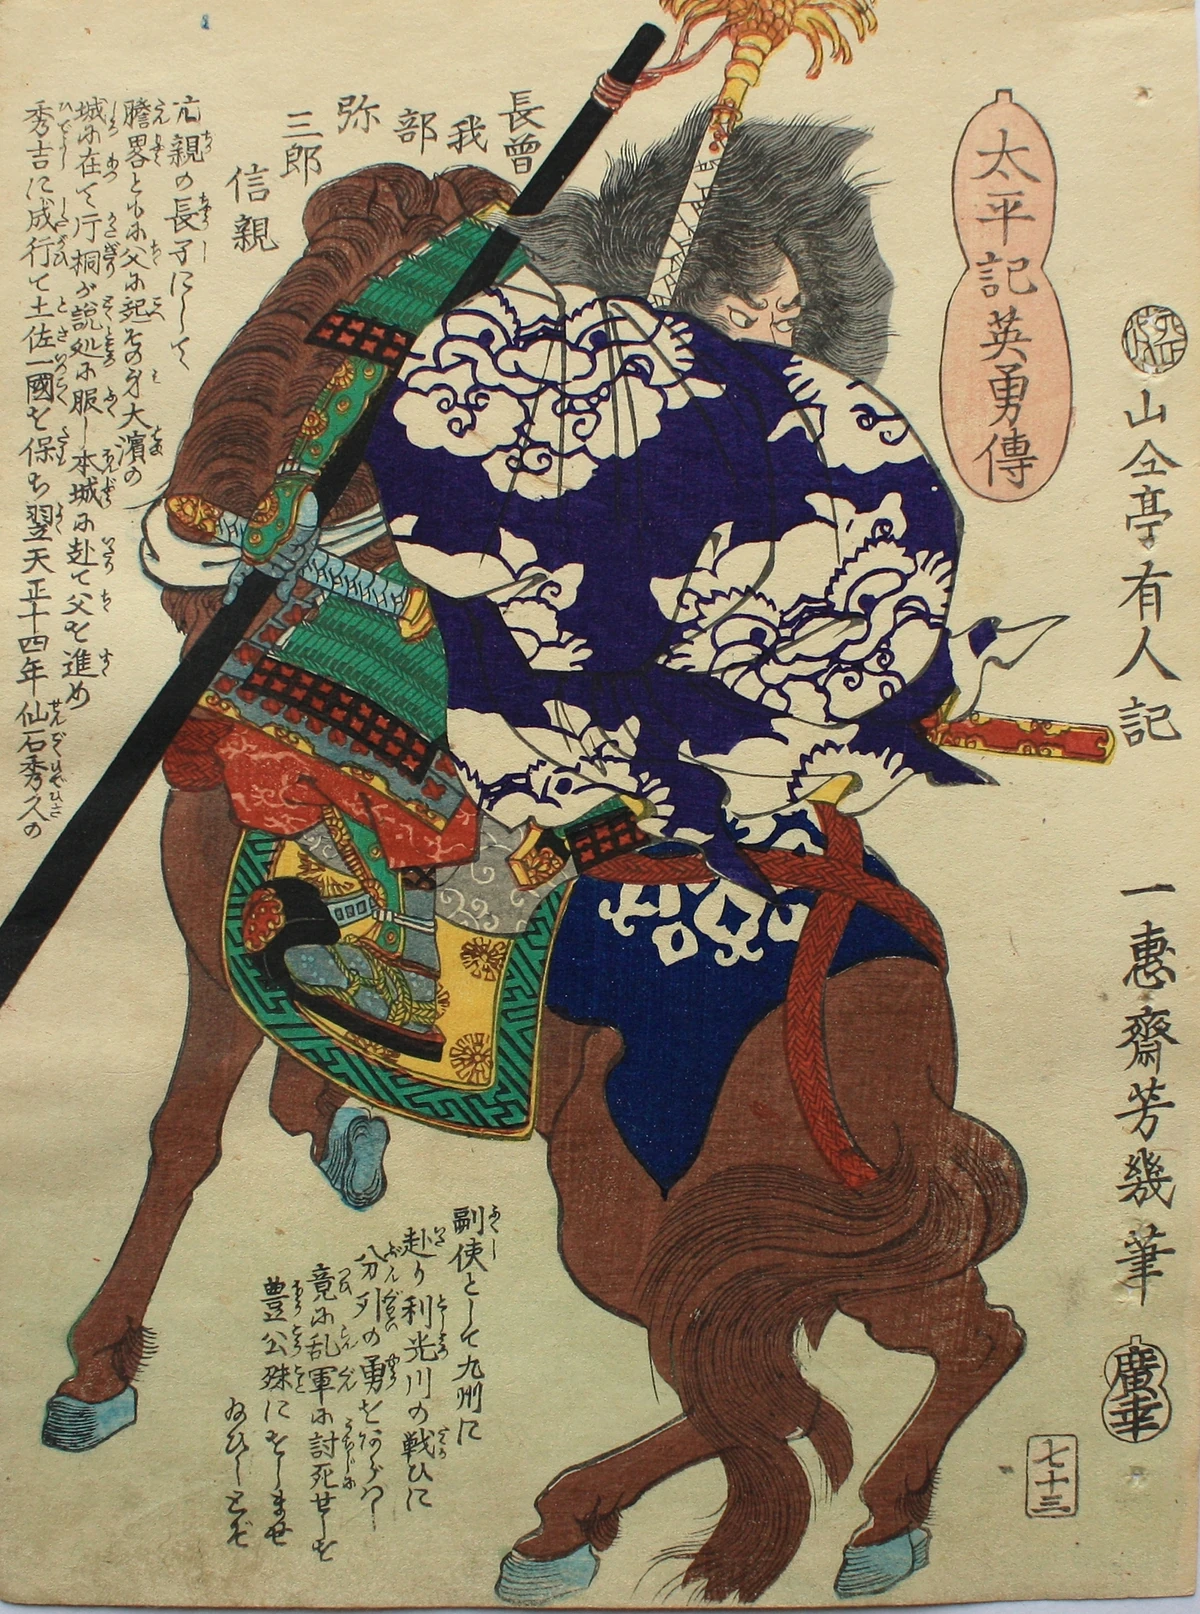 太平記英勇傳
山々亭有人記
一恵齋芳幾筆
廣幸
七十三
長曽
我
部
弥
三郎
信親
元親の長子にして
膽畧ともに父に起その身大濱の
城に在て片桐が説処に服し本城に赴て父を進め
秀吉に成行て土佐一國を保ち翌天正十四年仙石秀久の
副使として九州に
赴り利光川の戦ひに
分列の勇をあらはし
竟に乱軍に討死せしを
豊公殊にをしませ
給ひしとぞ